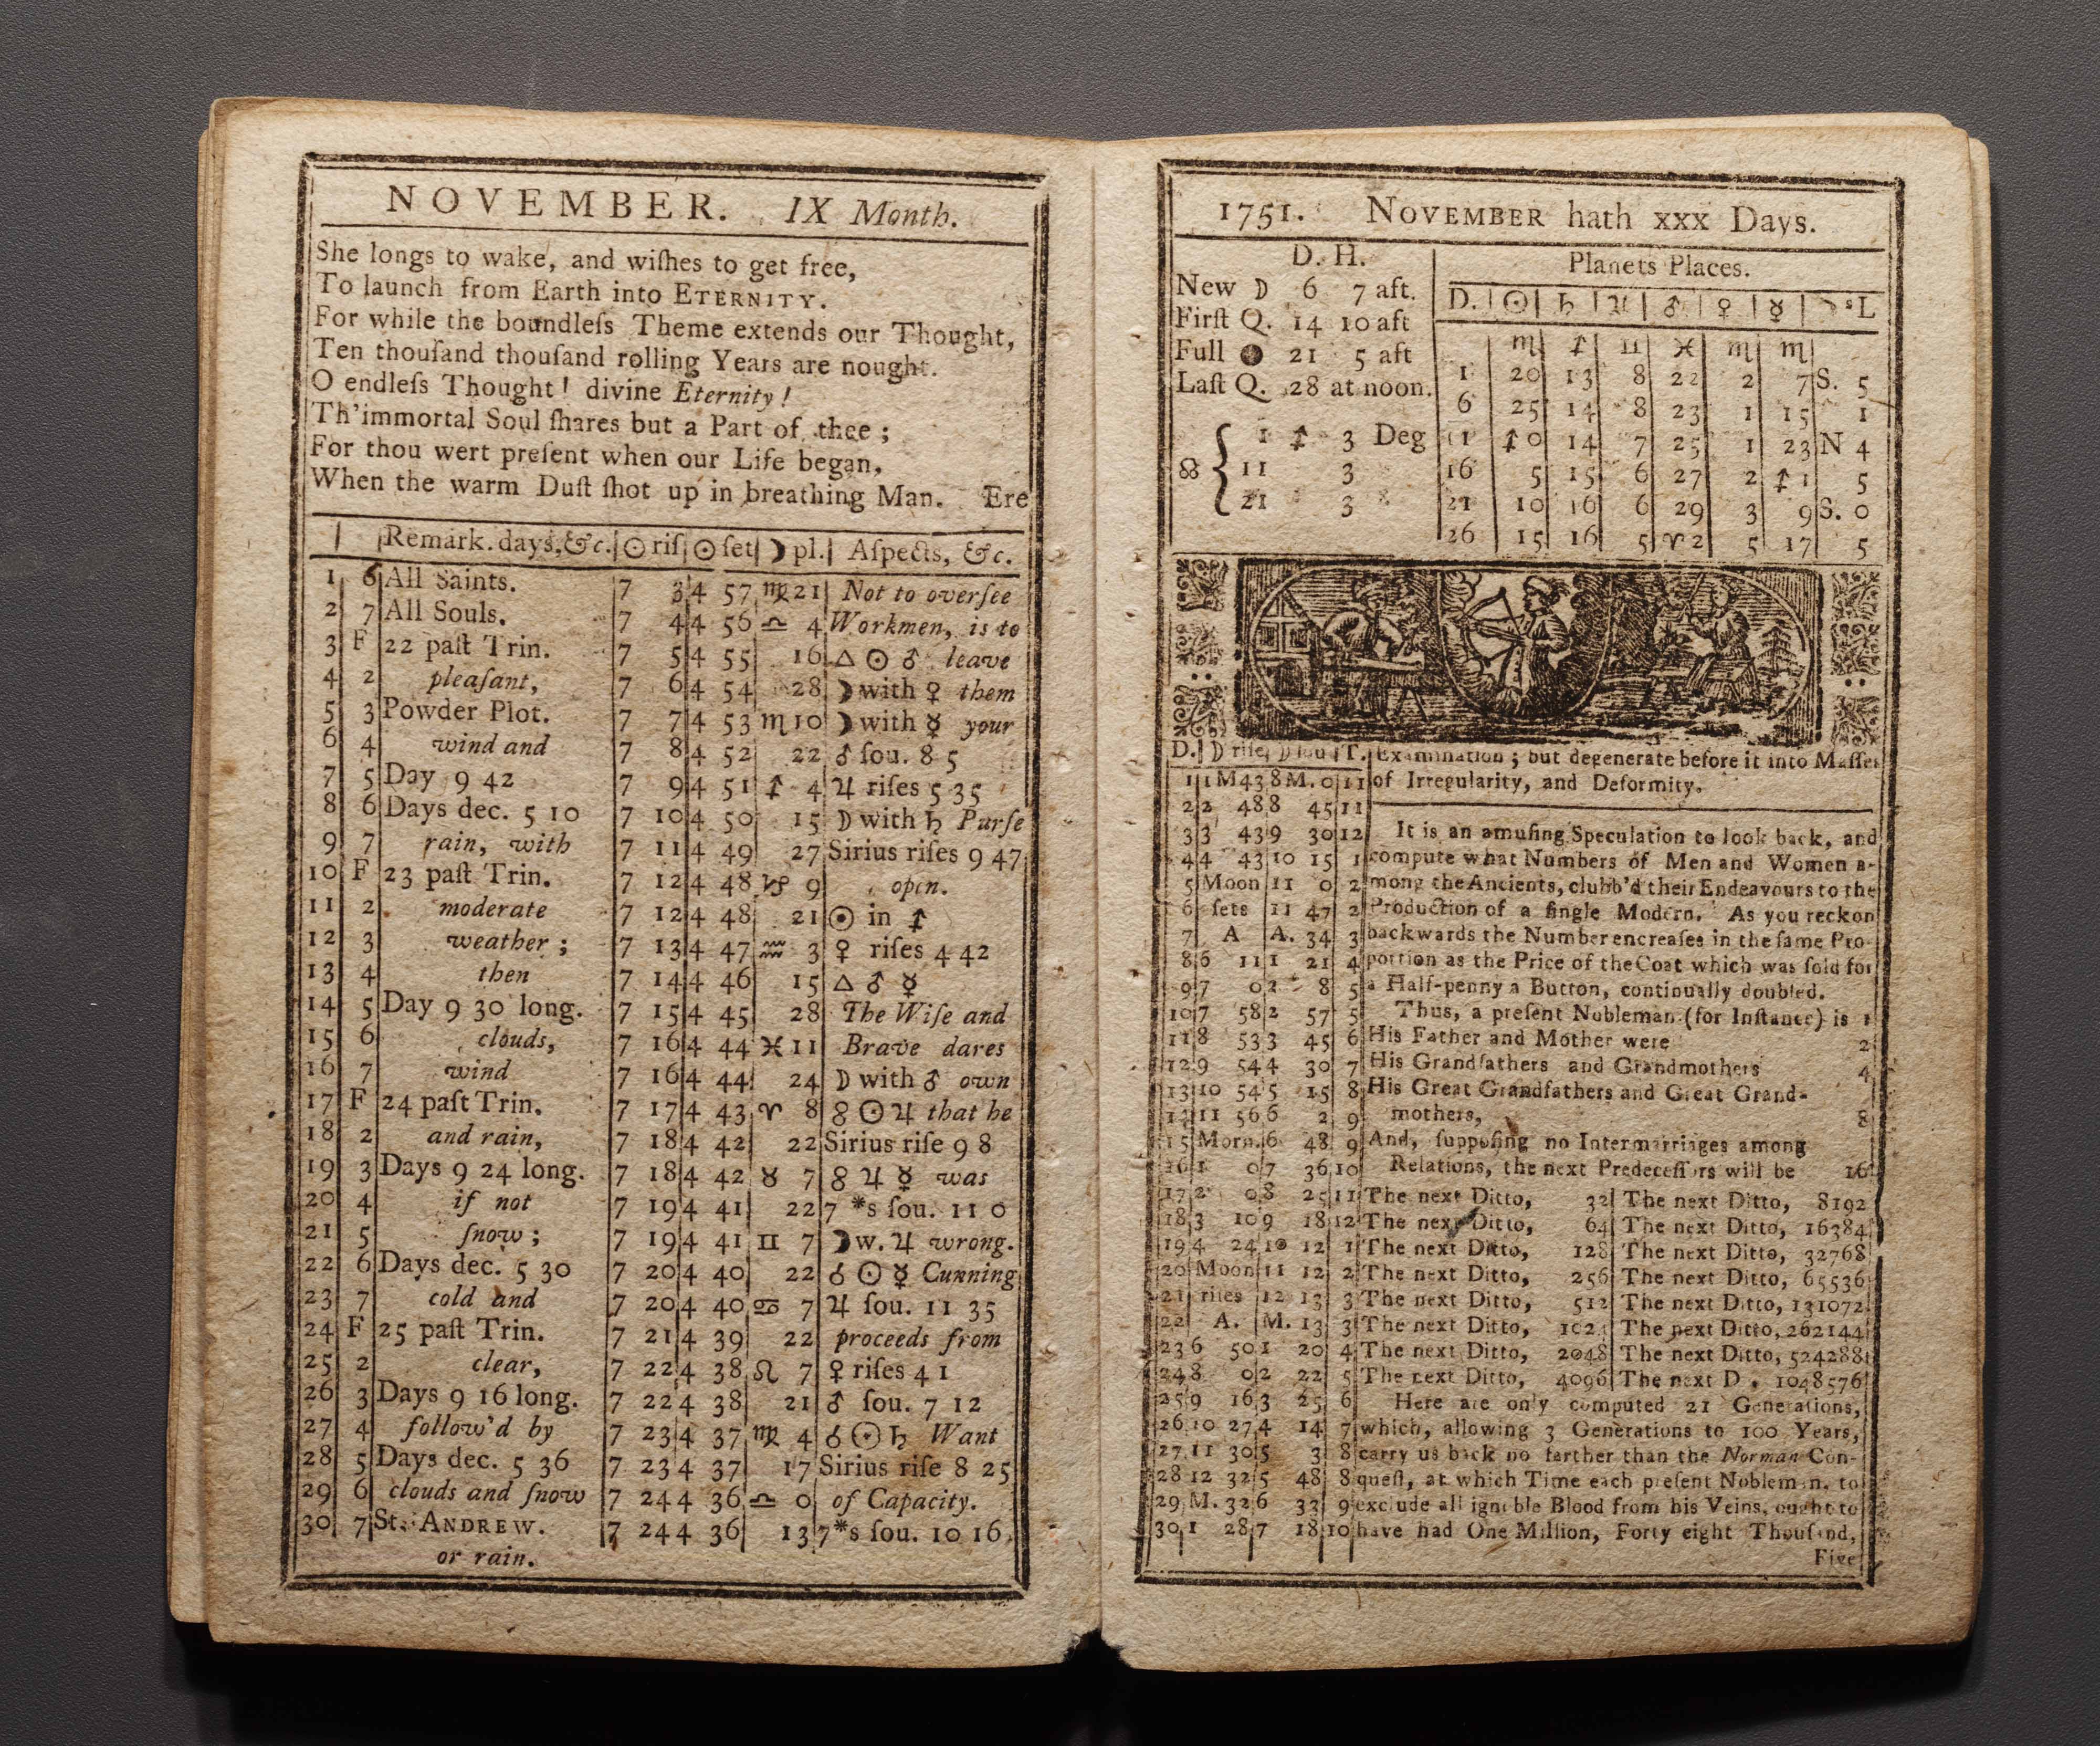 NOVEMBER. IX Month.
She longs to wake, and wiſhes to get free,
To launch from Earth into ETERNITY.
For while the boundleſs Theme extends our Thought,
Ten thouſand thouſand rolling Years are nought.
O endleſs Thought! divine Eternity!
Th'immortal Soul ſhares but a Part of thee;
For thou wert preſent when our Life began,
When the warm Duſt ſhot up in breathing Man. Ere
Remark. days, &c. ☉ riſ ☉ ſet ☽ pl. Aſpects, &c.
1 6 All Saints. 7 3 4 57 ♍ 21 Not to overſee
2 7 All Souls. 7 4 4 56 ♎ 4 Workmen, is to
3 F 22 paſt Trin. 7 5 4 55 16 △ ☉ ♂ leave
4 2 pleaſant, 7 6 4 54 28 ☽ with ♀ them
5 3 Powder Plot. 7 7 4 53 ♏ 10 ☽ with ☿ your
6 4 wind and 7 8 4 52 22 ♂ ſou. 8 5
7 5 Day 9 42 7 9 4 51 ♐ 4 ♃ riſes 5 35
8 6 Days dec. 5 10 7 10 4 50 15 ☽ with ♄ Purſe
9 7 rain, with 7 11 4 49 27 Sirius riſes 9 47
10 F 23 paſt Trin. 7 12 4 48 ♑ 9 open.
11 2 moderate 7 12 4 48 21 ☉ in ♐
12 3 weather; 7 13 4 47 ♒ 3 ♀ riſes 4 42
13 4 then 7 14 4 46 15 △ ♂ ☿
14 5 Day 9 30 long. 7 15 4 45 28 The Wiſe and
15 6 clouds, 7 16 4 44 ♓ 11 Brave dares
16 7 wind 7 16 4 44 24 ☽ with ♂ own
17 F 24 paſt Trin. 7 17 4 43 ♈ 8 ☍ ☉ ♃ that he
18 2 and rain, 7 18 4 42 22 Sirius riſe 9 8
19 3 Days 9 24 long. 7 18 4 42 ♉ 7 ☍ ♃ ☿ was
20 4 if not 7 19 4 41 22 7 *s ſou. 11 0
21 5 ſnow; 7 19 4 41 ♊ 7 ☽ w. ♃ wrong.
22 6 Days dec. 5 30 7 20 4 40 22 ☌ ☉ ☿ Cunning
23 7 cold and 7 20 4 40 ♋ 7 ♃ ſou. 11 35
24 F 25 paſt Trin. 7 21 4 39 22 proceeds from
25 2 clear, 7 22 4 38 ♌ 7 ♀ riſes 4 1
26 3 Days 9 16 long. 7 22 4 38 21 ♂ ſou. 7 12
27 4 follow'd by 7 23 4 37 ♍ 4 ☌ ☉ ♄ Want
28 5 Days dec. 5 36 7 23 4 37 17 Sirius riſe 8 25
29 6 clouds and ſnow 7 24 4 36 ♎ 0 of Capacity.
30 7 St. ANDREW. 7 24 4 36 13 7*s ſou. 10 16
or rain.
1751. NOVEMBER hath xxx Days.
D. H.
New ☽ 6 7 aft.
Firſt Q. 14 10 aft
Full ● 21 5 aft
Laſt Q. 28 at noon.
☊ 1 ♐ 3 Deg
11 3
21 3
Planets Places.
D. ☉ ♄ ♃ ♂ ♀ ☿ ☽'s L
♏ ♐ ♊ ♓ ♏ ♏
1 20 13 8 22 2 7 S. 5
6 25 14 8 23 1 15 1
11 ♐ 0 14 7 25 1 23 N 4
16 5 15 6 27 2 ♐ 1 5
21 10 16 6 29 3 9 S. 0
26 15 16 5 ♈ 2 5 17 5
D. ☽ riſe ☽ ſou T. Examination; but degenerate before it into Maſſes
1 1 M 43 8 M. 0 11 of Irregularity, and Deformity.
2 2 48 8 45 11
3 3 43 9 30 12 It is an amuſing Speculation to look back, and
4 4 43 10 15 1 compute what Numbers of Men and Women a-
5 Moon 11 0 2 mong the Ancients, clubb'd their Endeavours to the
6 ſets 11 47 2 Production of a ſingle Modern. As you reckon
7 A A. 34 3 backwards the Number encreaſes in the ſame Pro-
8 6 11 1 21 4 portion as the Price of the Coat which was ſold for
9 7 0 2 8 5 a Half-penny a Button, continually doubled.
10 7 58 2 57 5 Thus, a preſent Nobleman (for Inſtance) is 1
11 8 53 3 45 6 His Father and Mother were 2
12 9 54 4 30 7 His Grandfathers and Grandmothers 4
13 10 54 5 15 8 His Great Grandfathers and Great Grand-
14 11 56 6 2 9 mothers, 8
15 Morn. 6 48 9 And, ſuppoſing no Intermarriages among
16 1 0 7 36 10 Relations, the next Predeceſſors will be 16
17 2 0 8 25 11 The next Ditto, 32 The next Ditto, 8192
18 3 10 9 18 12 The next Ditto, 64 The next Ditto, 16384
19 4 24 10 12 1 The next Ditto, 128 The next Ditto, 32768
20 Moon 11 12 2 The next Ditto, 256 The next Ditto, 65536
21 riſes 12 13 3 The next Ditto, 512 The next Ditto, 131072
22 A. M. 13 3 The next Ditto, 1024 The next Ditto, 262144
23 6 50 1 20 4 The next Ditto, 2048 The next Ditto, 524288
24 8 0 2 22 5 The next Ditto, 4096 The next D . 1048576
25 9 16 3 25 6 Here are only computed 21 Generations,
26 10 27 4 14 7 which, allowing 3 Generations to 100 Years,
27 11 30 5 3 8 carry us back no farther than the Norman Con-
28 12 32 5 48 8 queſt, at which Time each preſent Nobleman, to
29 M. 32 6 33 9 exclude all ignoble Blood from his Veins, ought to
30 1 28 7 18 10 have had One Million, Forty eight Thouſand,
Five